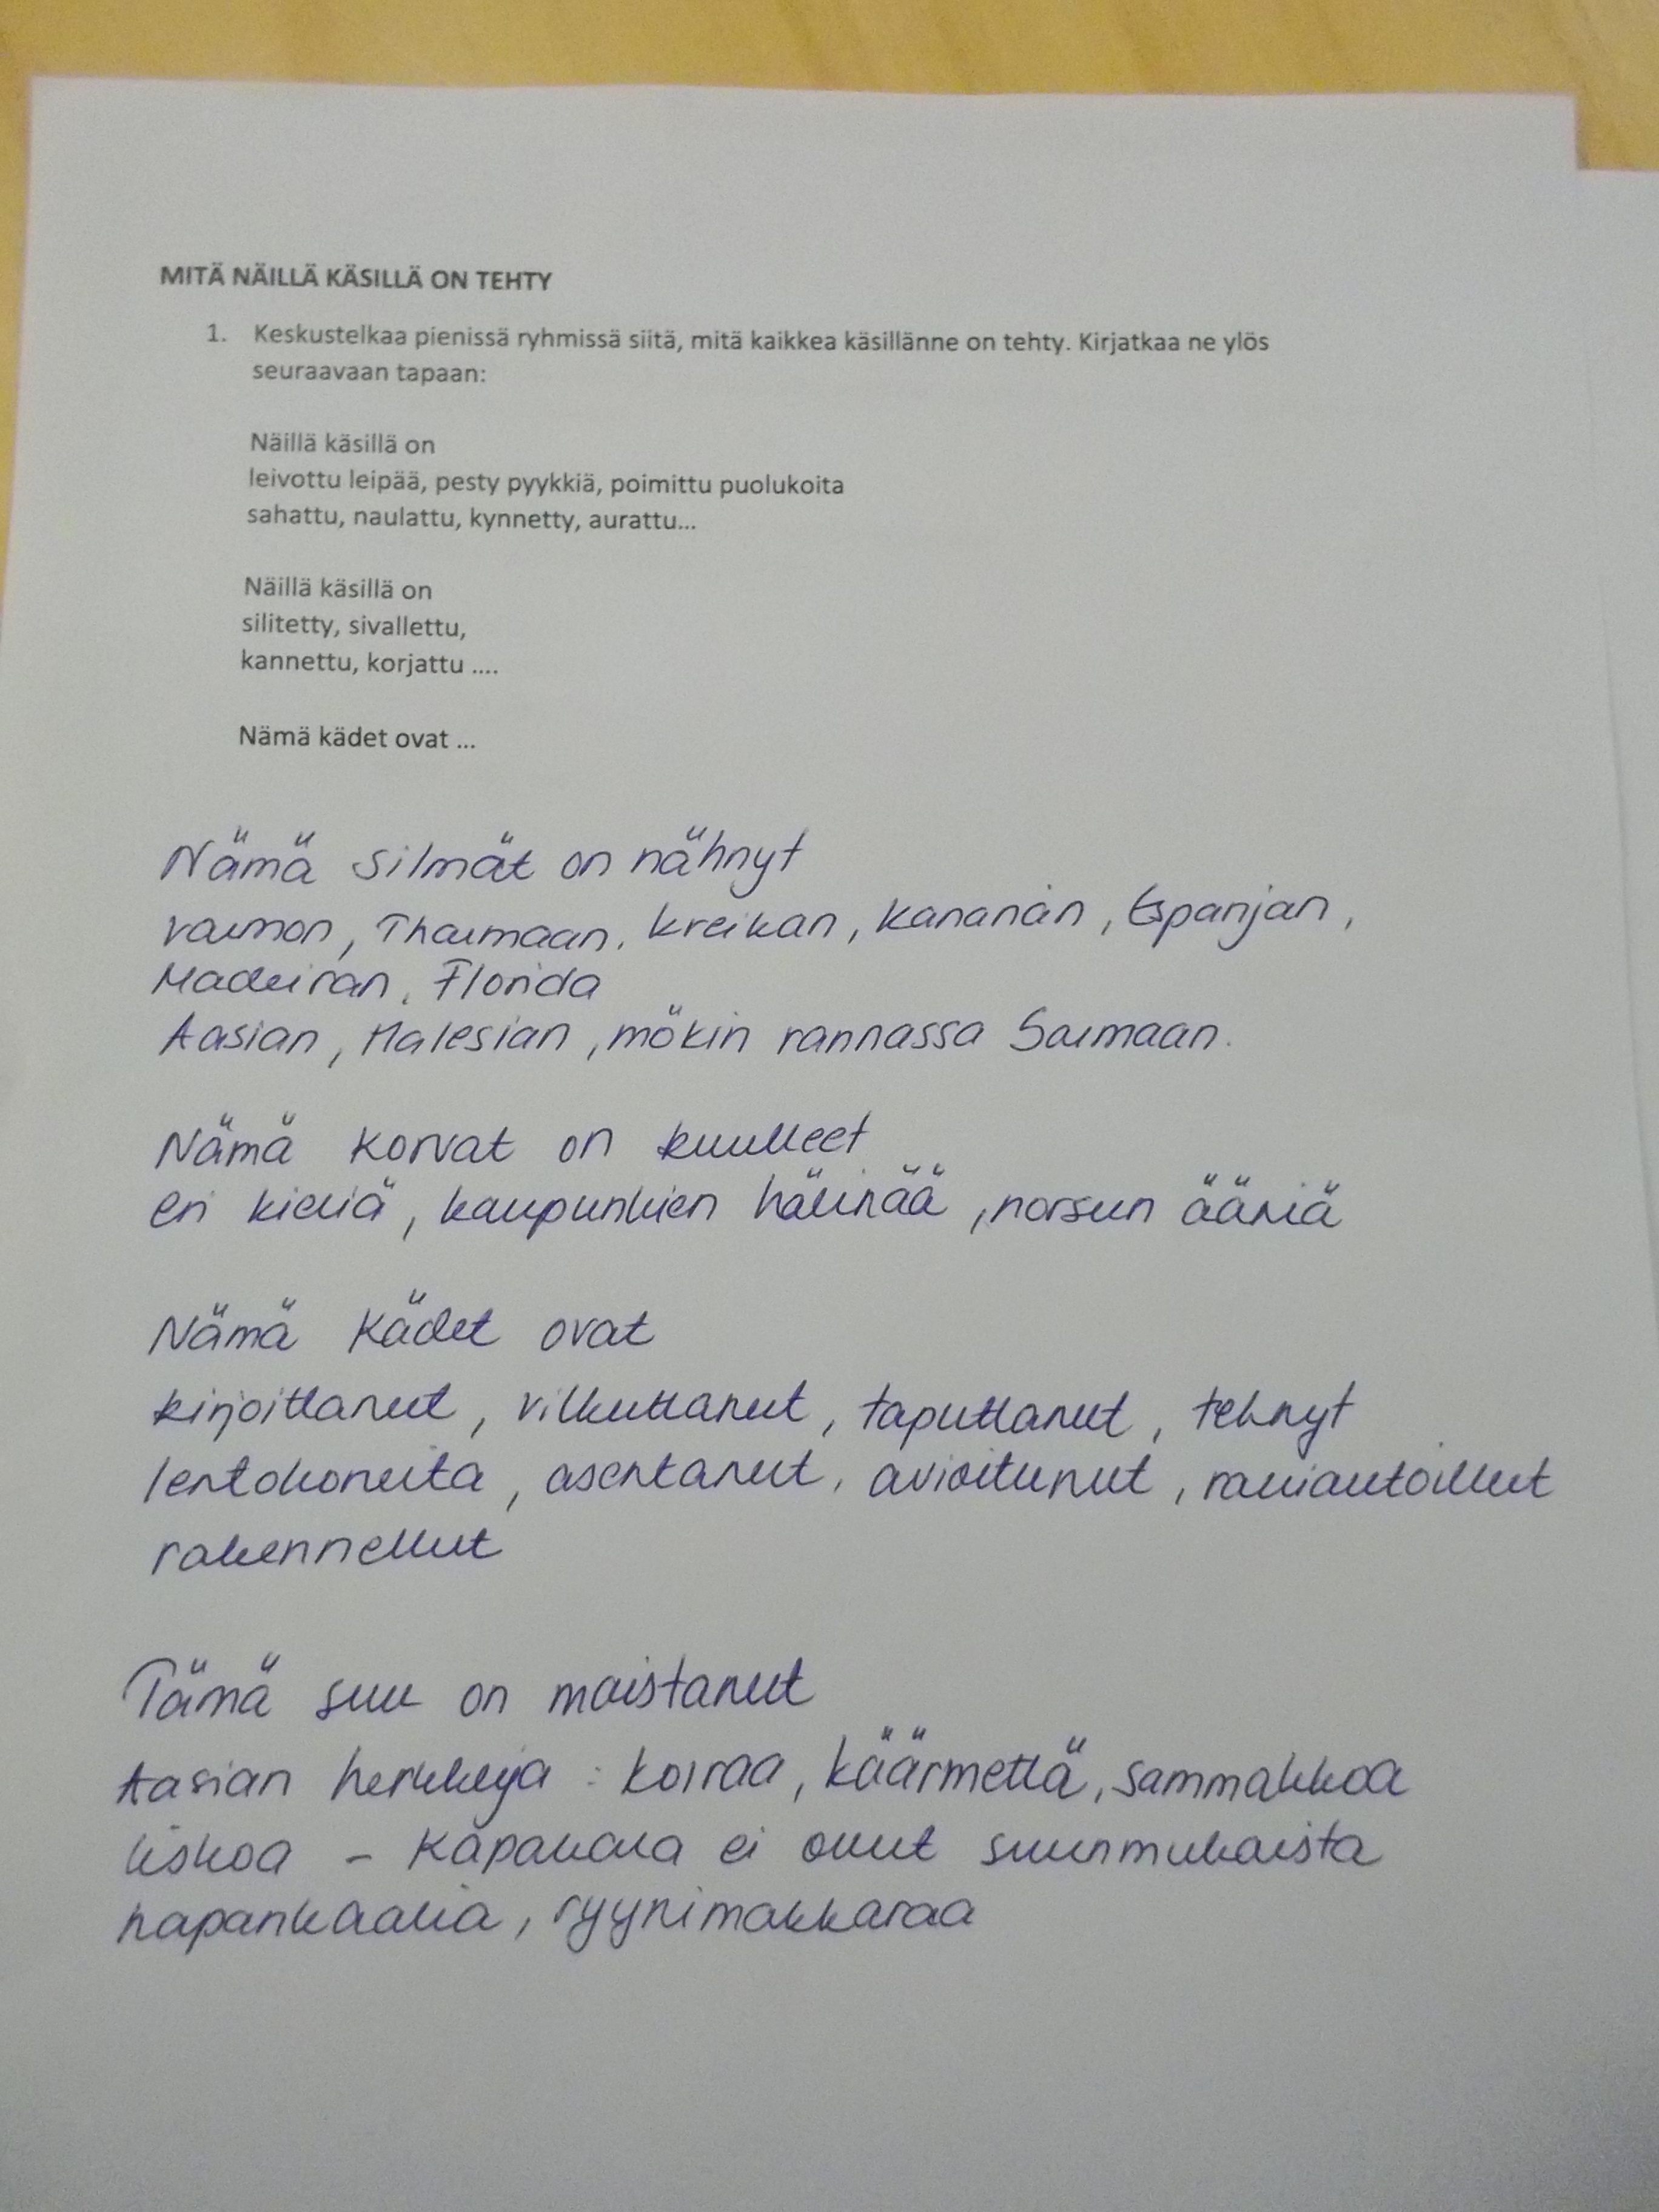 MITÄ NÄILLÄ KÄSILLÄ ON TEHTY
1. Keskustelkaa pienissä ryhmissä siitä, mitä kaikkea käsillänne on tehty. Kirjatkaa ne ylös
seuraavaan tapaan:
Näillä käsillä on
leivottu leipää, pesty pyykkiä, poimittu puolukoita
sahattu, naulattu, kynnetty, aurattu...
Näillä käsillä on
silitetty, sivallettu,
kannettu, korjattu ....
Nämä kädet ovat ...
Nämä silmät on nähnyt
vaimon, Thaimaan, kreikan, kananan, Espanjan,
Madeiran, Florida
Aasian, Malesian, mökin rannassa Saimaan.
Nämä korvat on kuulleet
eri kieliä, kaupunkien hälinää, norsun ääniä
Nämä kädet ovat
kirjoittanut, vilkuttanut, taputtanut, tehnyt
lentokoneita, asentanut, avioitunut, ralliautoillut
rakennellut
Tämä suu on maistanut
Aasian herkkuja: koiraa, käärmettä, sammakkoa
liskoa – Kapakala ei ollut suunmukaista
hapankaalia, ryynimakkaraa